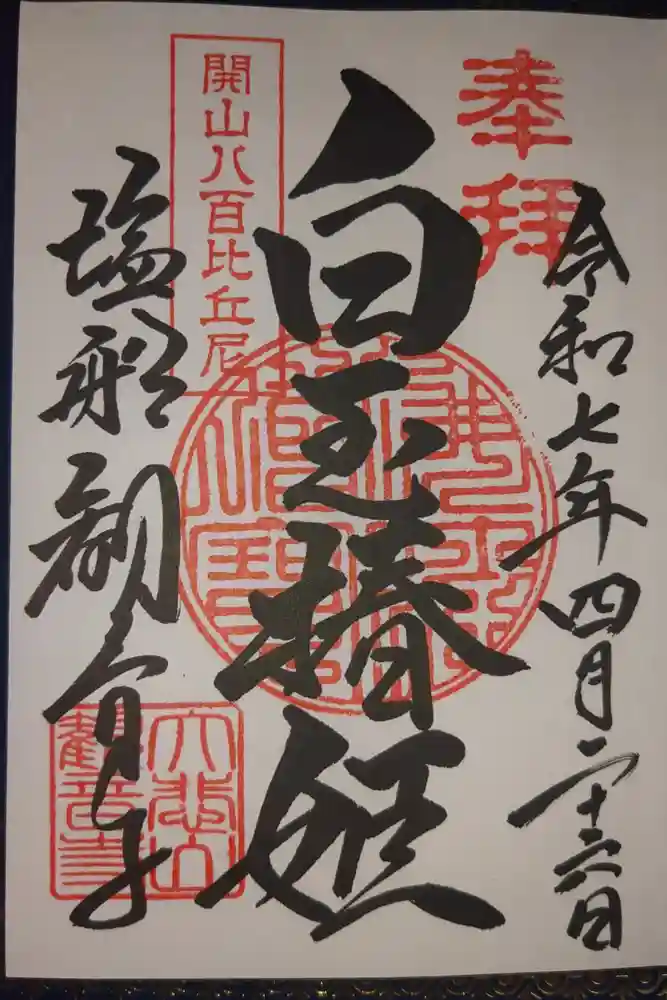 奉拝
令和七年四月二十六日
開山八百比丘尼
白玉椿姫
塩船観音寺
大悲山
觀音寺